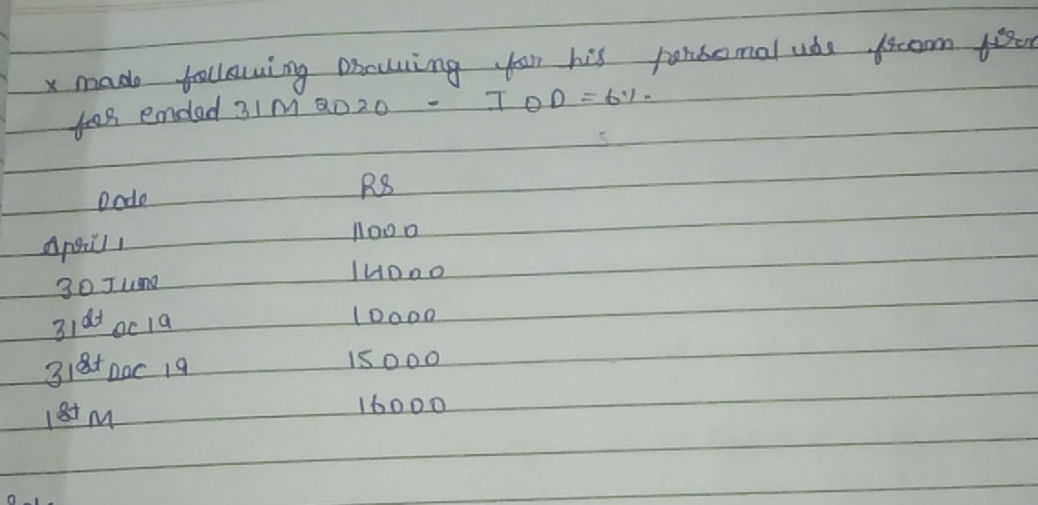 x made following Drawing for his personal use from firm
for ended 31 M 2020 - I O D = 6%.
Date RS
April 1 11000
30 June 14000
31st oc 19 10000
31st Dec 19 15000
1st M 16000